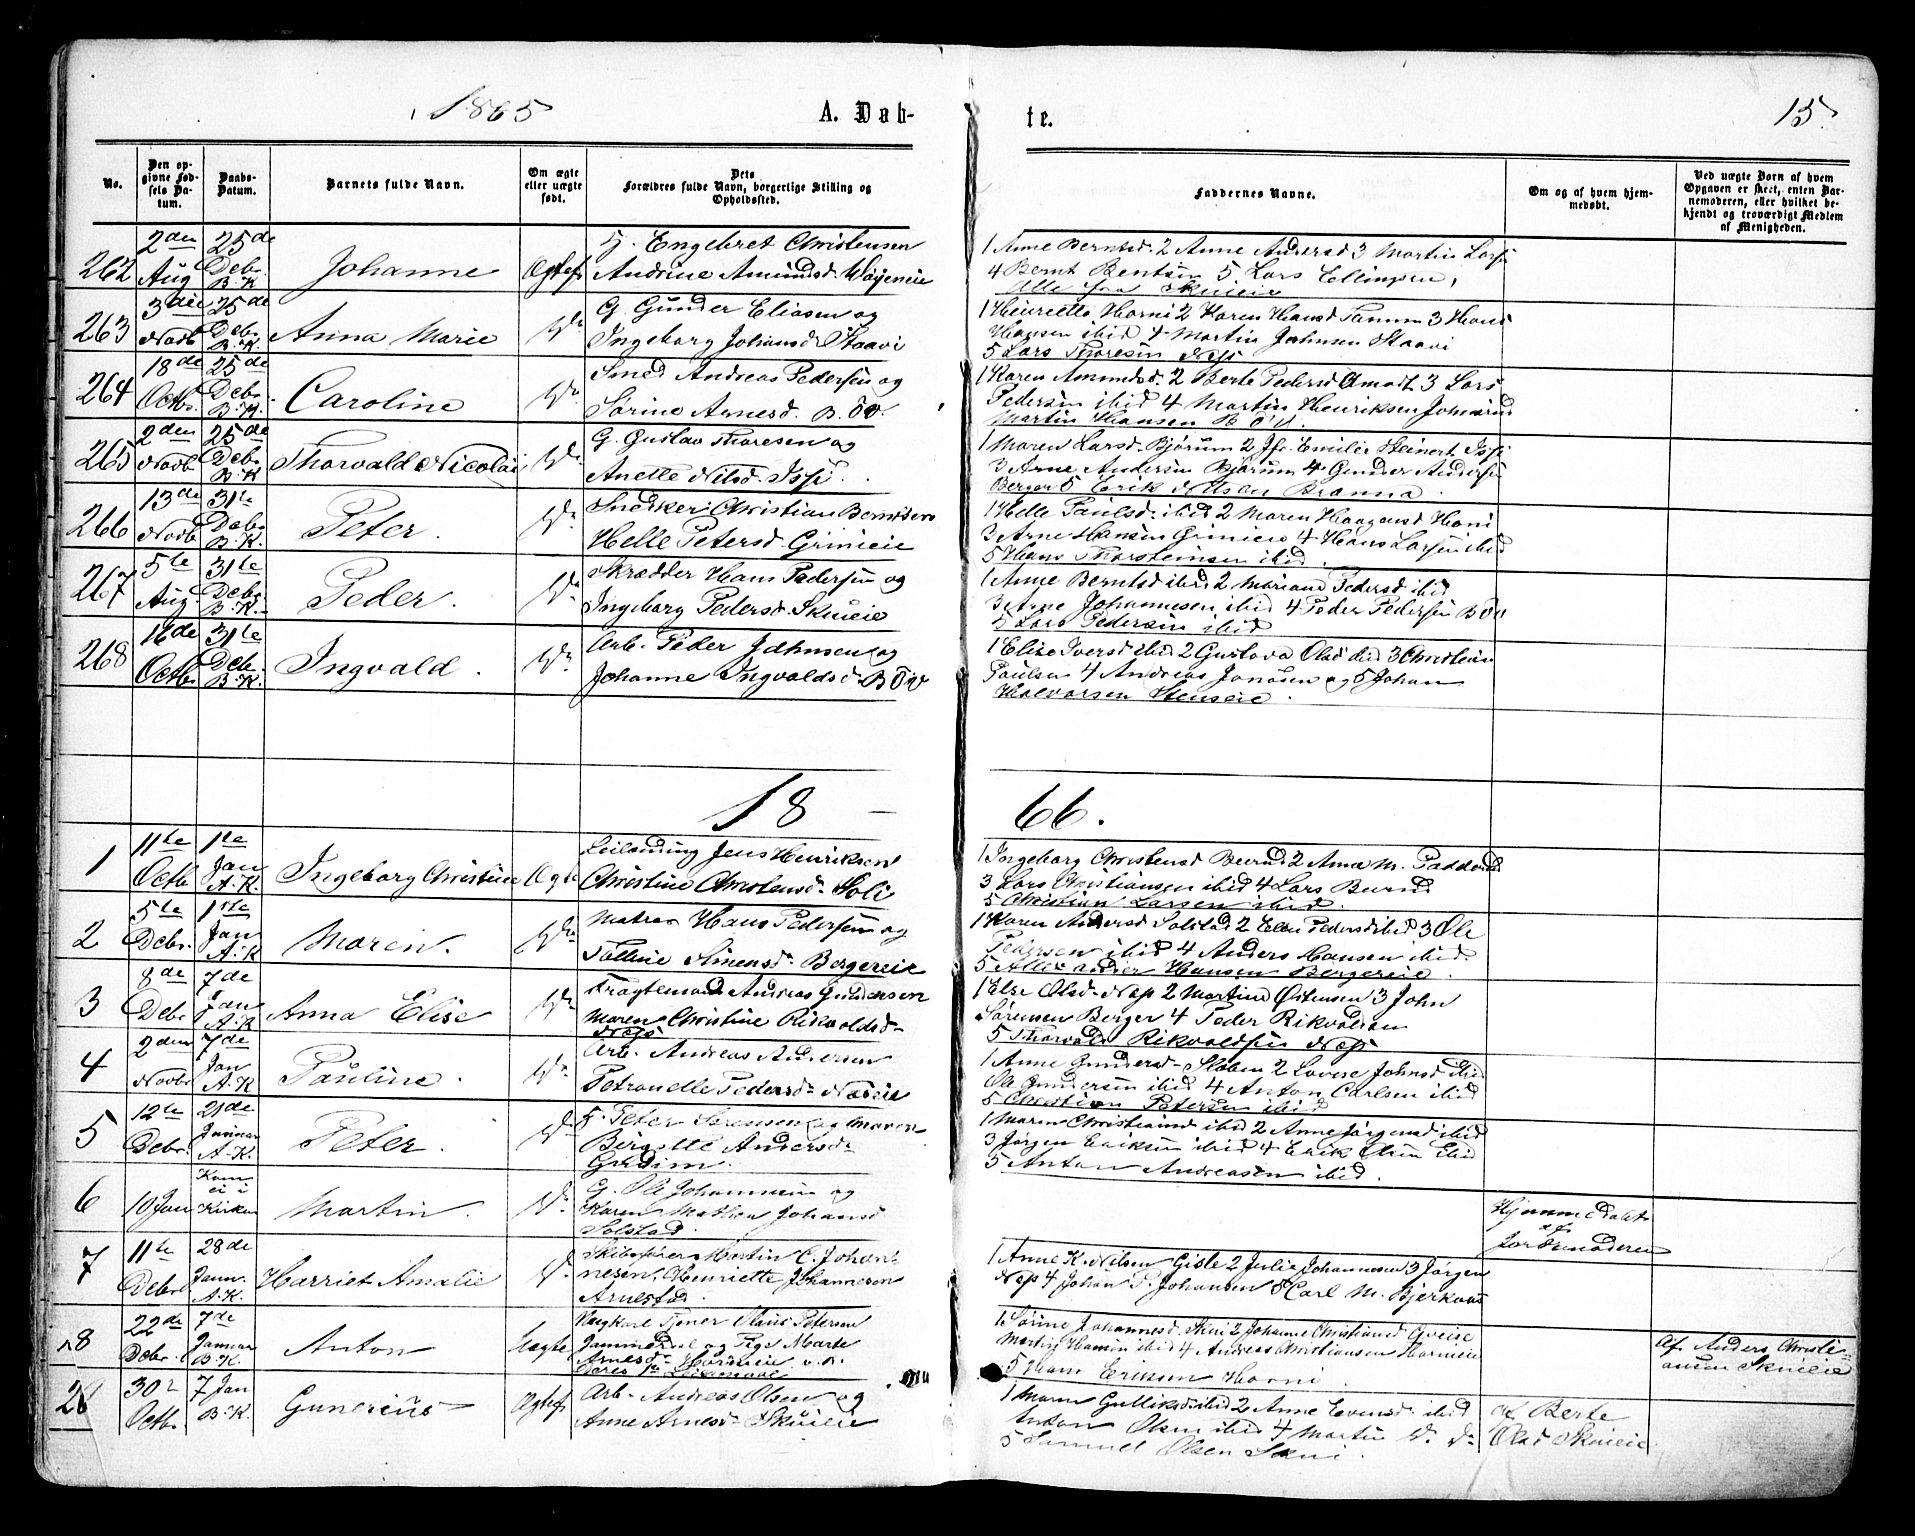 1865
A. Døb-
te.
15.
No.
Den opgivne Fødsels Datum.
Daabs-Datum.
Barnets fulde Navn.
Om ægte eller uægte født.
Dets Forældres fulde Navn, borgerlige Stilling og Opholdssted.
Faddernes Navne.
Om og af hvem hjemmedøbt.
Ved uægte Børn af hvem Opgaven er skeet, enten Barnemoderen, eller hvilket bekjendt og troværdigt Medlem af Menigheden.
262 2den Aug 25de Debr. B.K. Johanne Ægtef
Engebret Christensen
Andrine Amundsd.
1 Anne Berntsd. 2 Anne Andersd 3 Martin Lars
4 Bernt Bentsen 5 Lars Ellingsen,
Alle fra Skuieie
263 3die Novb 25de Debr. B.K. Anna Marie Do
G. Gunder Eliasen og
Ingeborg Johansd. Staavi
1 Henriette Horni 2 Karen Hansd Tanum 3 Hans
Hansen ibid 4 Martin Johnsen Staavi
5 Lars Thoresen Nes
264 18de Octbr. 25de Debr. B.K. Caroline Do
Smed Andreas Pedersen og
Sørine Arnesd. Bøv.
1 Karen Amundsd. 2 Berte Pedersd Amodt 3 Lars
Pedersen ibid 4 Martin Henriksen
Martin Hansen Bøv.
265 2den Novb. 25de Debr. B.K. Thorvald Nicolai Do
G. Gustav Thoresen og
Anette Nilsd.
1 Maren Larsd. Bjørum 2 Jfr. Emilie Steinert
3 Arne Andersen Bjørum 4 Gunder Anders
Berger 5 Erik Nilsen Branna.
266 13de Novb 31te Debr. B.K. Peter. Do
Snedker Christian Berntsen
Helle Petersd. Grinieie
1 Helle Paulsd. ibid 2 Maren Haagensd Horni
3 Arne Hansen Grinieie 4 Hans Larsen ibid
5 Hans Thorsteinsen ibid.
267 5te Aug. 31te Debr. B.K. Peder. Do
Skrædder Hans Pedersen og
Ingeborg Pedersd. Skuieie
1 Anne Berntsd ibid 2 Mariane Pedersd ibid
3 Arne Johannesen ibid 4 Peder Pedersen Bøv
5 Lars Pedersen ibid
268 16de Octb. 31te Debr. B.K. Ingvald. Do
Arb. Peder Johnsen og
Johanne Ingvaldsd. Bøv
1 Elise Iversd ibid 2 Gustava Olsd ibid 3 Christian
Paulsen 4 Andreas Jonasen og 5 Johan
Halvorsen Stenseie.
18
66.
1 11te Octb. 1te Jan A.K. Ingeborg Christine Ægte
Leilænding Jens Henriksen
Christine Christensd. Soli
1 Ingeborg Christensd Beurud 2 Anne M.
3 Lars Christiansen ibid 4 Lars Beurud
5 Christian Larsen ibid.
2 5te Debr. 1ste Jan A.K. Maren. Do
Matros Hans Pedersen og
Simensd. Bergereie
1 Karen Andersd Solstad 2 Elen Pedersd ibid 3 Ole
Pedersen ibid 4 Anders Hansen ibid.
5 Alexander Hansen Bergereie.
3 8de Debr. 7de Jan A.K. Anna Elise Do
Fragtemand Andreas Gundersen
Maren Christine Rikvoldsd.
Nes
1 Else Olsd. Nes 2 Martine Østensen 3 John
Sørensen Berger 4 Peder Rikvoldsen
5 Thorvald Rikvoldsen Nes
4 2den Novbr. 7de Jan A.K. Pauline. Do
Arb. Andreas Andersen
Petronelle Pedersd. Næseie
1 Anne Gundersd. Sloben 2 Lovise Johnsd ibid
Ole Gundersen ibid 4 Anton Carlsen ibid
5 Christian Petersen ibid
5 12te Debr. 21de Januar A.K. Peter. Do
Peter Sørensen og Maren
Birgitte Andersd.
Gudim.
1 Maren Christiansd ibid 2 Anne Jørgensd ibid
3 Jørgen Eriksen ibid 4 Erik Olsen Ibid
5 Anton Andreasen ibid.
6 10 Jan Kom ei i Kirken Martin. Do
G. Ole Johannesen og
Karen Mathea Johansd
Solstad.
Hjemmedøbt
af
Jordemoderen
7 11te Debr. 28de Jan. A.K. Harriet Amalie Do
Skibsfører Martin C. Johan-
nesen, Henriette Johannesen
Arnestad.
1 Anne K. Nilsen Gisle 2 Julie Johannesen 3 Jørgen
Nes 4 Johan P. Johansen 5 Carl M. Bjerknes
8 22de Debr. 7de Januar B.K. Anton Uægte
Ungkarl Tjener Olaus Petersen
Jammerdal og Pige Marte
Arnesd. Hornieie
1 Sørine Johannesd. Skui 2 Johanne Christiansd
Martin Hansen ibid 4 Andreas Christiansen Hornieie
5 Hans Eriksen Horni.
Af Anders Christi-
ansen Skuieie
30 Octbr. 7 Jan B.K. Gunerius Ægtef
Arb. Andreas Olsen og
Anne Arnesd. Skuieie
1 Maren Gulliksd ibid 2 Anne Evensd. ibid
Anton Olsen ibid 4 Martin Do. Do
5 Samuel Olsen Skui.
af Berte
Olsd Skuieie